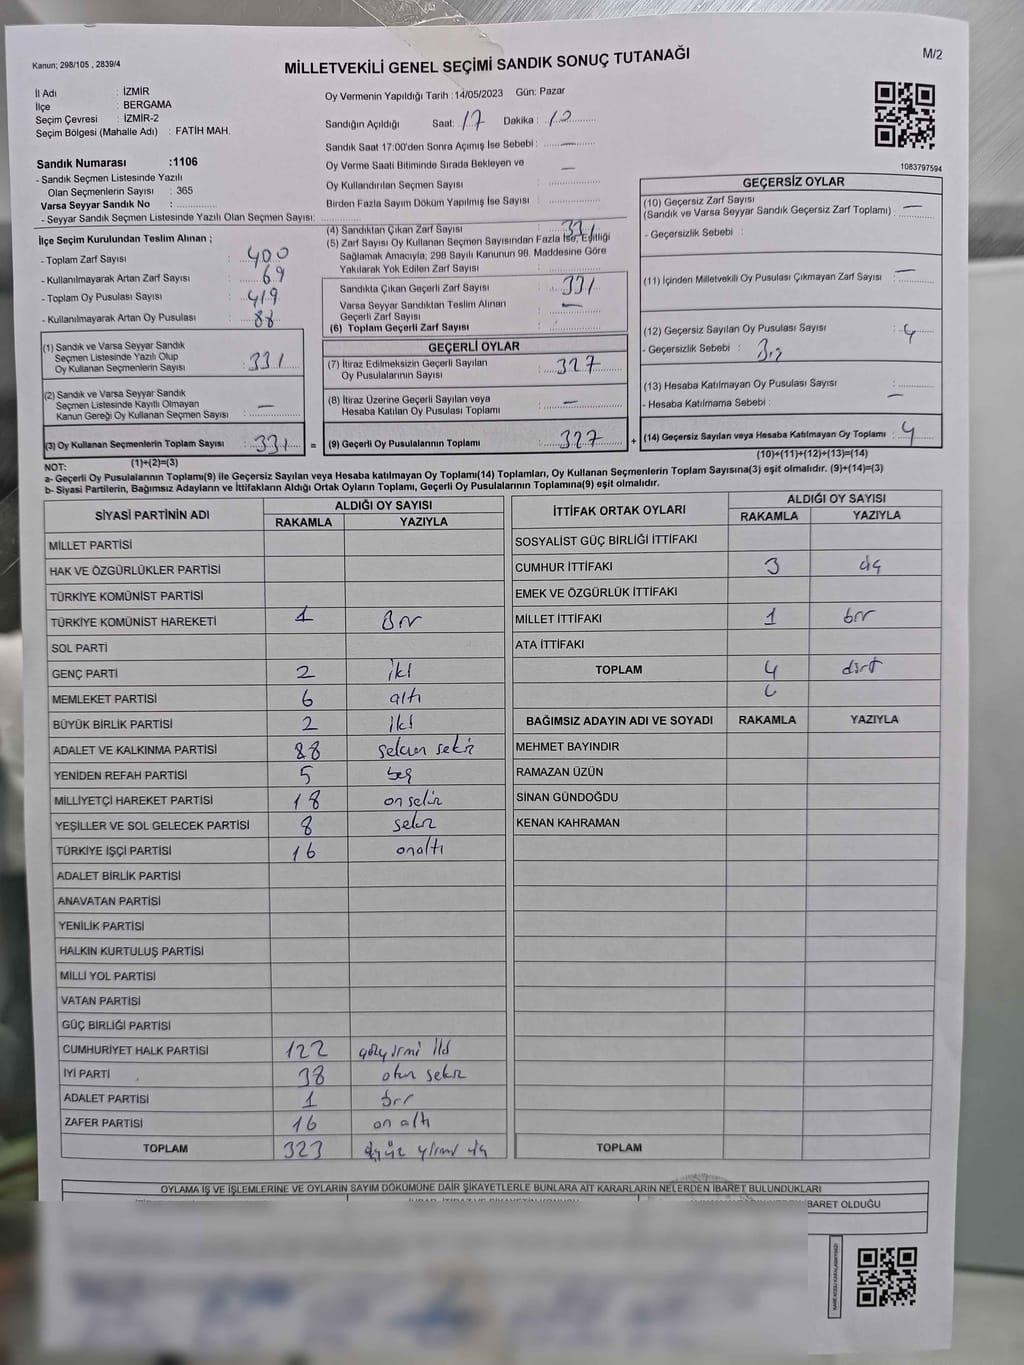 Kanun; 298/105 , 2839/4
MİLLETVEKİLİ GENEL SEÇİMİ SANDIK SONUÇ TUTANAĞI
M/2
İl Adı : İZMİR
İlçe : BERGAMA
Seçim Çevresi : İZMİR-2
Seçim Bölgesi (Mahalle Adı) : FATİH MAH.
Oy Vermenin Yapıldığı Tarih : 14/05/2023 Gün: Pazar
Sandığın Açıldığı Saat: 17 Dakika :
Sandık Saat 17:00'den Sonra Açımış İse Sebebi : —
Oy Verme Saati Bitiminde Sırada Bekleyen ve
Oy Kullandırılan Seçmen Sayısı : —
Birden Fazla Sayım Döküm Yapılmış İse Sayısı :
1083797594
Sandık Numarası :1106
- Sandık Seçmen Listesinde Yazılı
Olan Seçmenlerin Sayısı : 365
Varsa Seyyar Sandık No :
- Seyyar Sandık Seçmen Listesinde Yazılı Olan Seçmen Sayısı:
İlçe Seçim Kurulundan Teslim Alınan ;
- Toplam Zarf Sayısı : 400
- Kullanılmayarak Artan Zarf Sayısı : 69
- Toplam Oy Pusulası Sayısı : 419
- Kullanılmayarak Artan Oy Pusulası : 88
(1) Sandık ve Varsa Seyyar Sandık
Seçmen Listesinde Yazılı Olup
Oy Kullanan Seçmenlerin Sayısı : 331
(2) Sandık ve Varsa Seyyar Sandık
Seçmen Listesinde Kayıtlı Olmayan
Kanun Gereği Oy Kullanan Seçmen Sayısı : —
(3) Oy Kullanan Seçmenlerin Toplam Sayısı : 331 =
(1)+(2)=(3)
(4) Sandıktan Çıkan Zarf Sayısı : 331
(5) Zarf Sayısı Oy Kullanan Seçmen Sayısından Fazla İse, Eşitliği
Sağlamak Amacıyla, 298 Sayılı Kanunun 98. Maddesine Göre
Yakılarak Yok Edilen Zarf Sayısı :
Sandıkta Çıkan Geçerli Zarf Sayısı : 331
Varsa Seyyar Sandıktan Teslim Alınan
Geçerli Zarf Sayısı : —
(6) Toplam Geçerli Zarf Sayısı :
GEÇERLİ OYLAR
(7) İtiraz Edilmeksizin Geçerli Sayılan
Oy Pusulalarının Sayısı : 327
(8) İtiraz Üzerine Geçerli Sayılan veya
Hesaba Katılan Oy Pusulası Toplamı : —
(9) Geçerli Oy Pusulalarının Toplamı : 327 +
GEÇERSİZ OYLAR
(10) Geçersiz Zarf Sayısı : —
(Sandık ve Varsa Seyyar Sandık Geçersiz Zarf Toplamı)
- Geçersizlik Sebebi :
(11) İçinden Milletvekili Oy Pusulası Çıkmayan Zarf Sayısı : —
(12) Geçersiz Sayılan Oy Pusulası Sayısı : 4
- Geçersizlik Sebebi :
(13) Hesaba Katılmayan Oy Pusulası Sayısı :
- Hesaba Katılmama Sebebi : —
(14) Geçersiz Sayılan veya Hesaba Katılmayan Oy Toplamı : 4
(10)+(11)+(12)+(13)=(14)
NOT:
a- Geçerli Oy Pusulalarının Toplam(9) ile Geçersiz Sayılan veya Hesaba katılmayan Oy Toplamı(14) Toplamları, Oy Kullanan Seçmenlerin Toplam Sayısına(3) eşit olmalıdır. (9)+(14)=(3)
b- Siyasi Partilerin, Bağımsız Adayların ve İttifakların Aldığı Ortak Oyların Toplamı, Geçerli Oy Pusulalarının Toplamına(9) eşit olmalıdır.
SİYASİ PARTİNİN ADI ALDIĞI OY SAYISI
RAKAMLA YAZIYLA
MİLLET PARTİSİ
HAK VE ÖZGÜRLÜKLER PARTİSİ
TÜRKİYE KOMÜNİST PARTİSİ
TÜRKİYE KOMÜNİST HAREKETİ 1 Bir
SOL PARTİ
GENÇ PARTİ 2 iki
MEMLEKET PARTİSİ 6 altı
BÜYÜK BİRLİK PARTİSİ 2 iki
ADALET VE KALKINMA PARTİSİ 88 seksen sekiz
YENİDEN REFAH PARTİSİ 5 beş
MİLLİYETÇİ HAREKET PARTİSİ 18 on sekiz
YEŞİLLER VE SOL GELECEK PARTİSİ 8 sekiz
TÜRKİYE İŞÇİ PARTİSİ 16 onaltı
ADALET BİRLİK PARTİSİ
ANAVATAN PARTİSİ
YENİLİK PARTİSİ
HALKIN KURTULUŞ PARTİSİ
MİLLİ YOL PARTİSİ
VATAN PARTİSİ
GÜÇ BİRLİĞİ PARTİSİ
CUMHURİYET HALK PARTİSİ 122 yüzyirmi iki
İYİ PARTİ 38 otuz sekiz
ADALET PARTİSİ 1 bir
ZAFER PARTİSİ 16 on altı
TOPLAM 323 üçyüz yirmi üç
İTTİFAK ORTAK OYLARI ALDIĞI OY SAYISI
RAKAMLA YAZIYLA
SOSYALİST GÜÇ BİRLİĞİ İTTİFAKI
CUMHUR İTTİFAKI 3 üç
EMEK VE ÖZGÜRLÜK İTTİFAKI
MİLLET İTTİFAKI 1 bir
ATA İTTİFAKI
TOPLAM 4 dört
BAĞIMSIZ ADAYIN ADI VE SOYADI RAKAMLA YAZIYLA
MEHMET BAYINDIR
RAMAZAN ÜZÜN
SİNAN GÜNDOĞDU
KENAN KAHRAMAN
TOPLAM
OYLAMA İŞ VE İŞLEMLERİNE VE OYLARIN SAYIM DÖKÜMÜNE DAİR ŞİKAYETLERLE BUNLARA AİT KARARLARIN NELERDEN İBARET BULUNDUKLARI
İBARET OLDUĞU